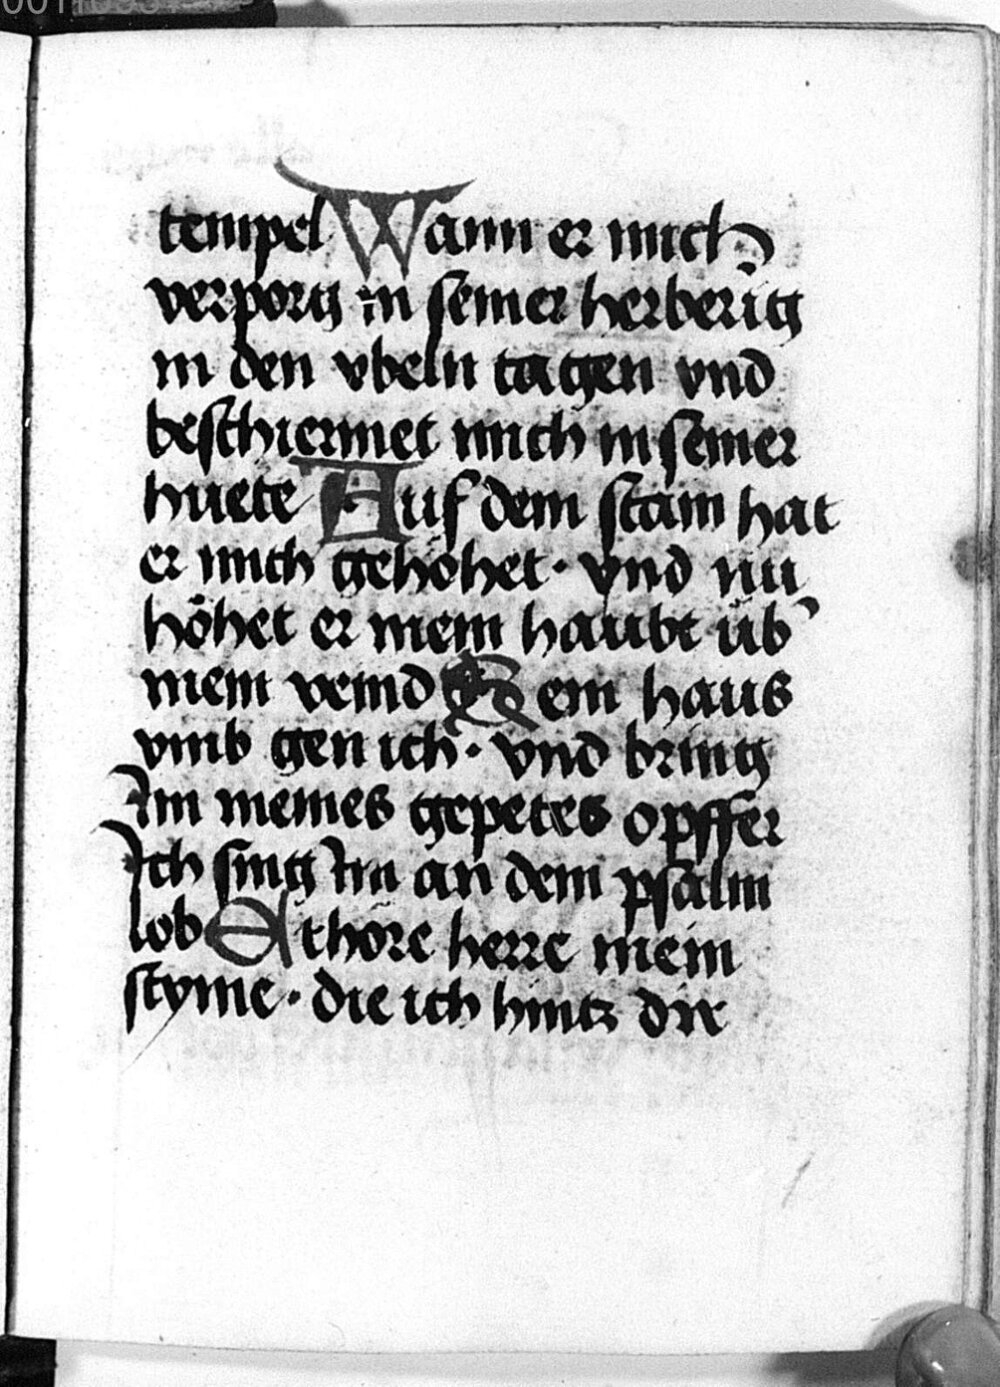 tempel Wann er mich
verporg in seiner herberig
in den vbeln tagen vnd
beschiermet mich in seiner
huete Auf dem stain hat
er mich gehohet · vnd nu
höhet er mein haubt üb
mein veind Sein haus
vmb gen ich · vnd bring
Im meines gepetes opffer
Ich sing Im an dem psalm
lob Ethore herre mein
styme · die ich hintz dir